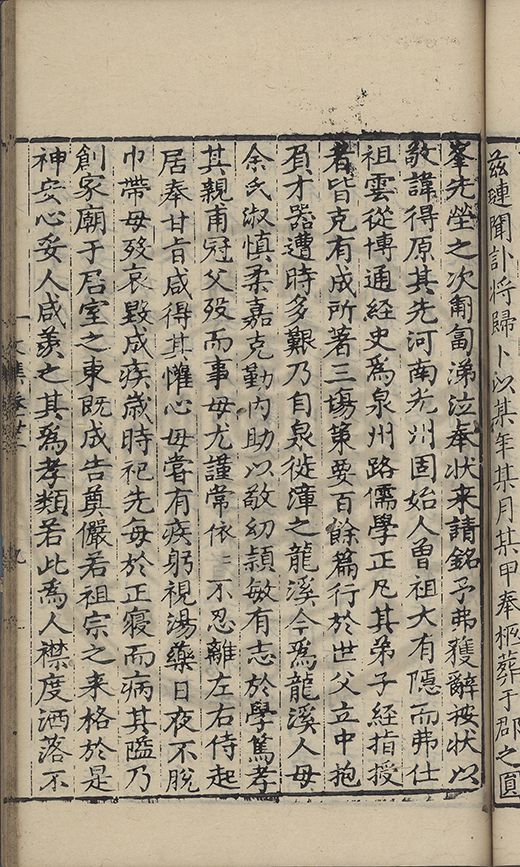 茲璉聞訃將歸卜以某年某月某甲奉柩葬于郡之圓
峯先塋之次匍匐涕泣奉狀来請銘予弗獲辭按狀以
敬諱得原其先河南光州固始人曾祖大有隱而弗仕
祖雲從博通經史爲泉州路儒學正凡其弟子經指授
者皆克有成所著三場策要百餘篇行於世父立中抱
負才器遭時多艱乃自泉徙漳之龍溪今爲龍溪人母
余氏淑慎柔嘉克勤内助以敬幼頴敏有志於學篤孝
其親甫冠父殁而事母尤謹常依〻不忍離左右侍起
居奉甘旨咸得其懽心母嘗有疾躬視湯藥日夜不脱
巾帶母殁哀毀成疾歳時祀先每於正寝而病其隘乃
創家廟于居室之東既成告奠儼若祖宗之来格於是
神安心妥人咸羡之其爲孝類若此爲人襟度洒落不
文集卷廿一
九